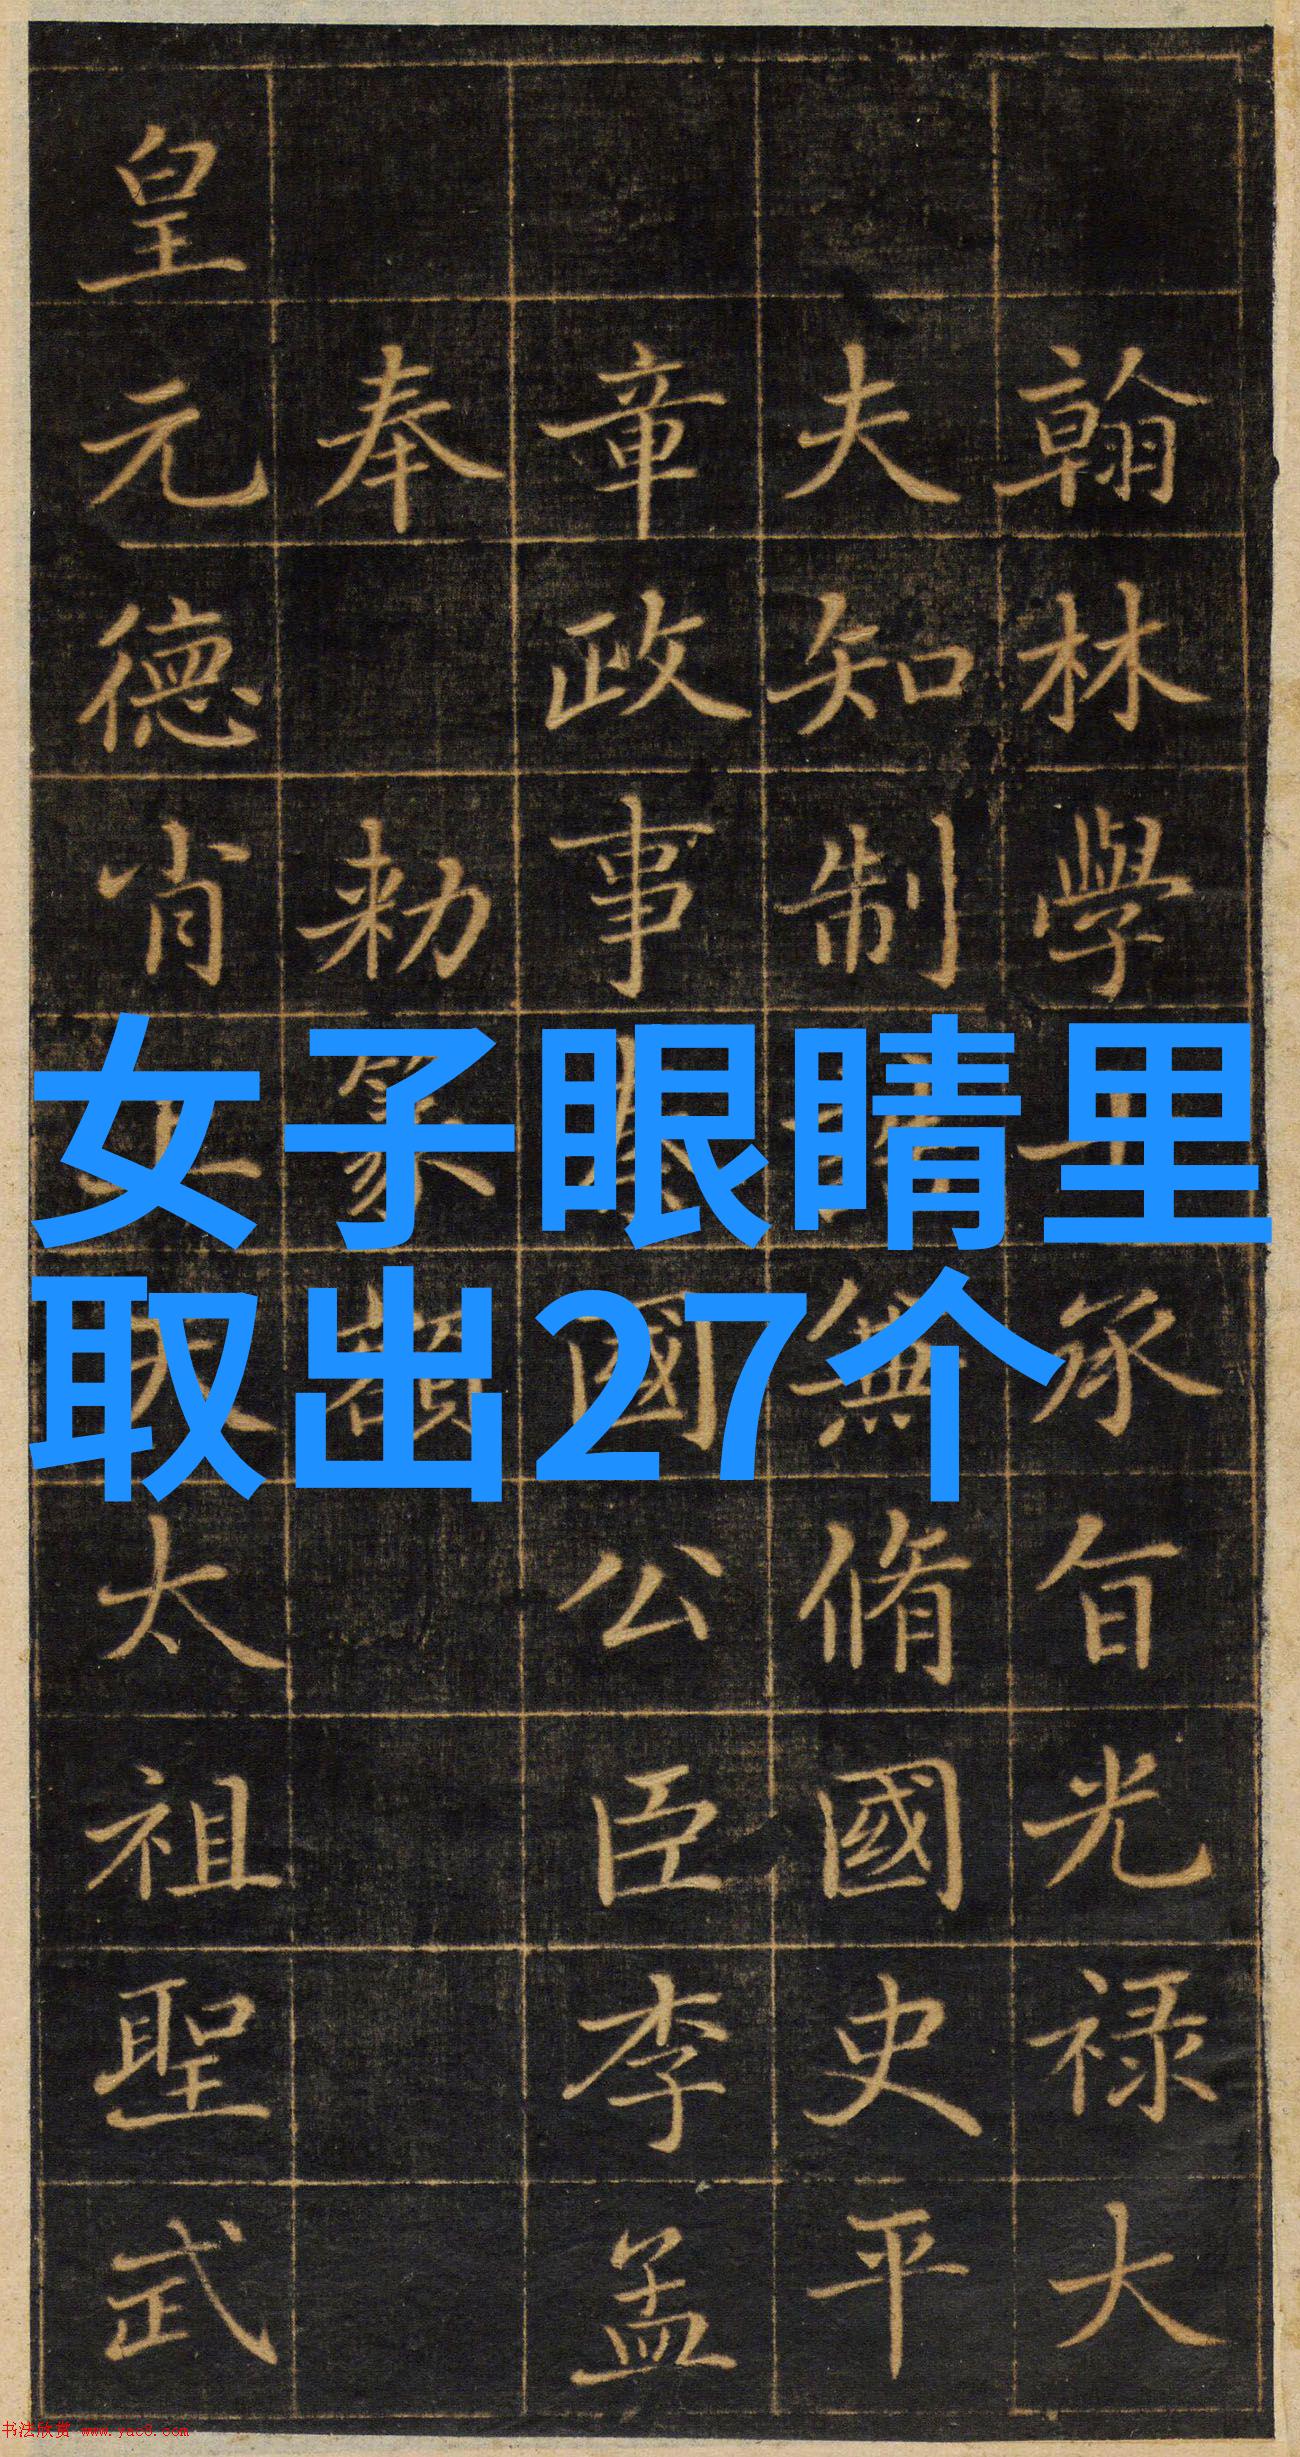 翰林學承旨光禄大
夫知制兼脩國史平
章政事國公臣李孟
奉
勑篆額
皇
元德肖太祖聖武
女子眼睛里
取出27个
书法欣赏 www.yac8.com